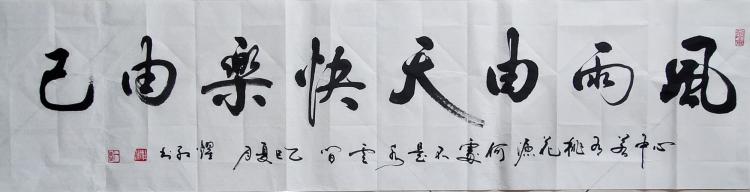 風雨由天快樂由己
心中若有桃花源何處不是水雲間 乙巳夏月 书